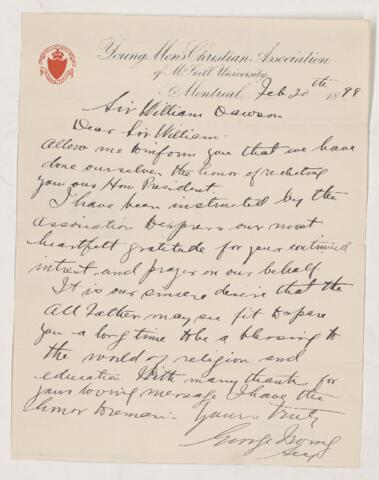 Young Men's Christian Association
of McGill University
Montreal, Feb 20th 1899
Sir William Dawson
Dear Sir William:
Allow me to inform you that we have
done ourselves the honor of reelecting
you our Hon. President.
I have been instructed by the
Association to express our most
heartfelt gratitude for your continued
interest and prayer on our behalf.
It is our sincere desire that the
All Father may see fit to spare
you a long time to be a blessing to
the world of religion and
education. With many thanks for
your loving message I have the
honor to remain. Yours truly
George Irving
Secy